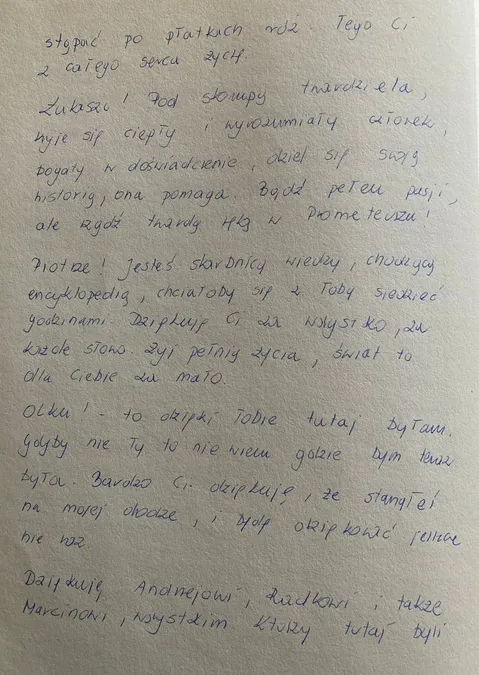 stąpać po płatkach róż. Tego Ci
z całego serca życzę.
Łukaszu! Pod skorupą twardziela,
kryje się ciepły i wyrozumiały człowiek,
bogaty w doświadczenie, dziel się swoją
historią, ona pomaga. Bądź pełen pasji,
ale rządź twardą ręką w Prometeuszu!
Piotrze! Jesteś skarbnicą wiedzy, chodzącą
encyklopedią, chciałoby się z Tobą siedzieć
godzinami. Dziękuję Ci za wszystko, za
każde słowo. Żyj pełnią życia, świat to
dla Ciebie za mało.
Olku! - to dzięki Tobie tutaj byłam.
Gdyby nie Ty to nie wiem gdzie bym teraz
była. Bardzo Ci dziękuję, że stanąłeś
na mojej drodze, i będę dziękować jeszcze
nie raz.
Dziękuję Andrzejowi, Radkowi i także
Marcinowi, wszystkim którzy tutaj byli